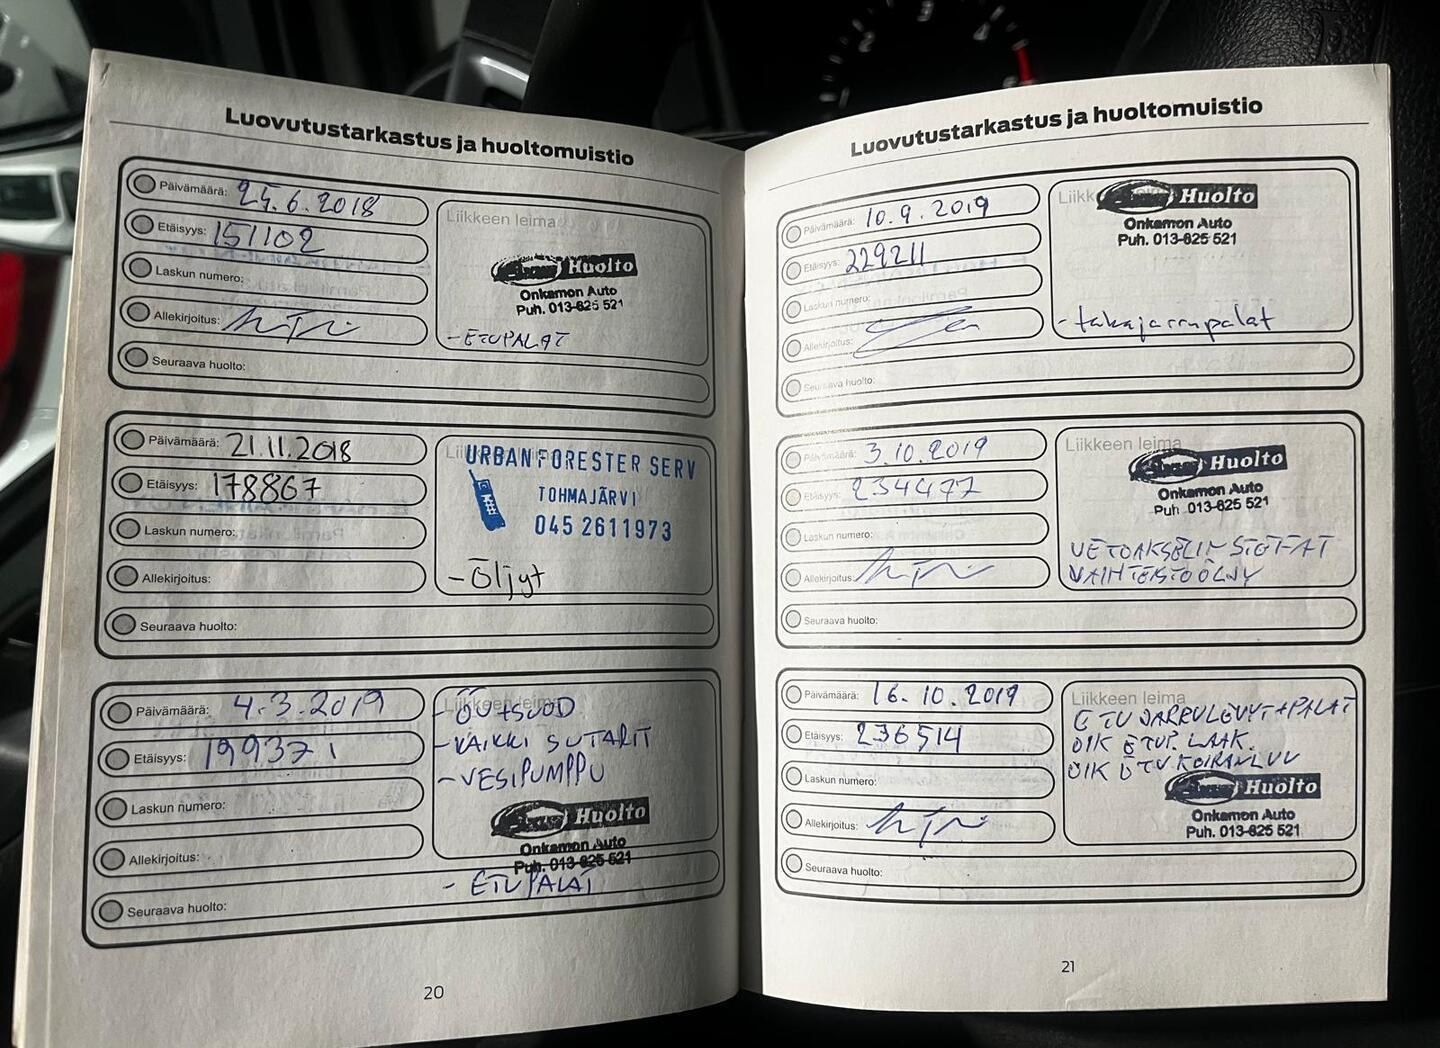 Luovutustarkastus ja huoltomuistio
Päivämäärä: 25.6.2018
Etäisyys: 151102
Laskun numero:
Allekirjoitus:
Seuraava huolto:
Liikkeen leima
Huolto
Onkamon Auto
Puh. 013-825 521
- ETUPALAT
Päivämäärä: 21.11.2018
Etäisyys: 178867
Laskun numero:
Allekirjoitus:
Seuraava huolto:
URBAN FORESTER SERV
TOHMAJÄRVI
045 2611973
- Öljyt
Päivämäärä: 4.3.2019
Etäisyys: 199371
Laskun numero:
Allekirjoitus:
Seuraava huolto:
Liikkeen leima
- KAIKKI SUTARIT
- VESIPUMPPU
Huolto
Onkamon Auto
Puh. 013-825 521
- ETUPALAT
20
Luovutustarkastus ja huoltomuistio
Päivämäärä: 10.9.2019
Etäisyys: 229211
Laskun numero:
Allekirjoitus:
Seuraava huolto:
Huolto
Onkamon Auto
Puh. 013-825 521
- takajarrupalat
Päivämäärä: 3.10.2019
Etäisyys: 234477
Laskun numero:
Allekirjoitus:
Seuraava huolto:
Liikkeen leima
Huolto
Onkamon Auto
Puh 013-825 521
VETOAKSELIN
VAIHTEISTOÖLJY
Päivämäärä: 16.10.2019
Etäisyys: 236514
Laskun numero:
Allekirjoitus:
Seuraava huolto:
Liikkeen leima
ETUJARRULEVYT+PALAT
OIK ETUP. LAAK.
OIK ETU KOIRANLUU
Huolto
Onkamon Auto
Puh. 013-825 521
21